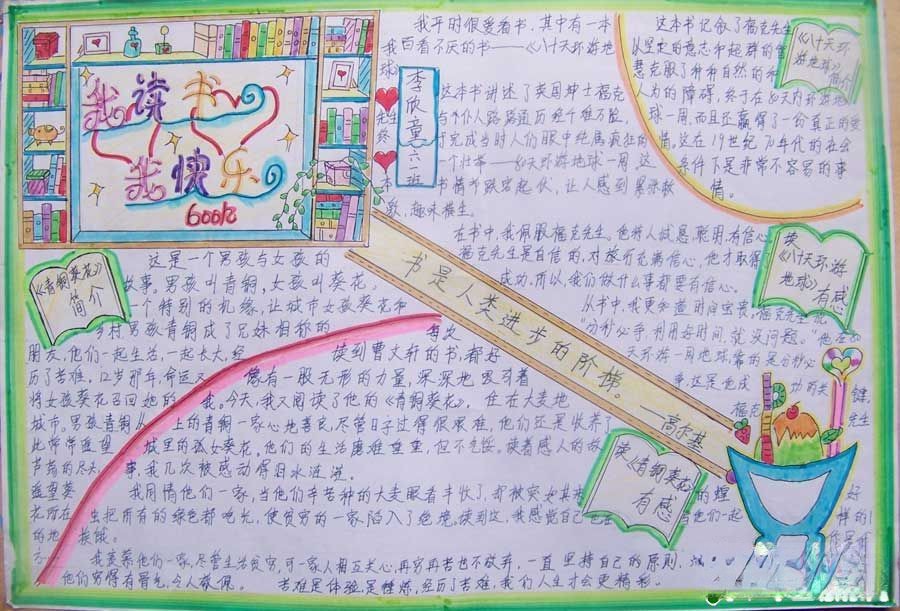 我读书
我快乐
600字
李欣童
六一班
我平时很爱看书，其中有一本
我百看不厌的书——《八十天环游地
球》
这本书讲述了英国绅士福克
先生与个仆人路路通历经千难万险，
终于完成当时人们眼中纯属疯狂的
一个壮举——80天环游地球一周。这
本书情节跌宕起伏，让人感到
趣味横生。
《八十天环游地球》简介
这本书记叙了福克先生
以坚定的意志和超群的智
慧克服了种种自然的和
人为的障碍，终于在80天内环游地
球一周，而且还赢得了一份真正的爱
情，这在19世纪70年代的社会
条件下是非常不容易的事
情。
读《八十天环游地球》有感
在书中，我佩服福克先生。他待人诚恳，聪明，有信心
福克先生是自信的，对旅行充满信心，他才取得了
成功，所以，我们做什么事都要有信心。
从书中，我更知道时间宝贵，福克先生说
分秒必争，利用好时间，就没问题。
天环游一周地球，靠的是分秒必
争，这是他成功的关键，
福克先生
书是人类进步的阶梯。——高尔基
《青铜葵花》简介
这是一个男孩与女孩的
故事。男孩叫青铜，女孩叫葵花，
一个特别的机缘，让城市女孩葵花和
乡村男孩青铜成了兄妹相称的
朋友，他们一起生活，一起长大，经
历了苦难。12岁那年，命运又
将女孩葵花召回她的
城市。男孩青铜从
此常常遥望
芦荡的尽头，
遥望葵
花所在
的地
方
读《青铜葵花》有感
每次
读到曹文轩的书，都好
像有一股无形的力量，深深地吸引着
我。今天，我又阅读了他的《青铜葵花》，住在大麦地
上的青铜一家心地善良，尽管日子过得很艰难，他们还是收养了
城里的孤女葵花。他们的生活磨难重重，但不气馁。读着感人的故
事，我几次被感动得泪水涟涟。
我同情他们一家，当他们辛苦种的大麦眼看丰收了，却被突如其来的蝗
虫把所有的绿色都吃光，使贫穷的一家陷入了绝境。读到这，我感觉自己也在与他们一起
挨饿。
我羡慕他们一家，尽管生活贫穷，可一家人相互关心，再穷再苦也不放弃，一直坚持自己的原则，
他们穷得有骨气，令人敬佩。
苦难是体验，是锤炼，经历了苦难，我们人生才会更精彩。